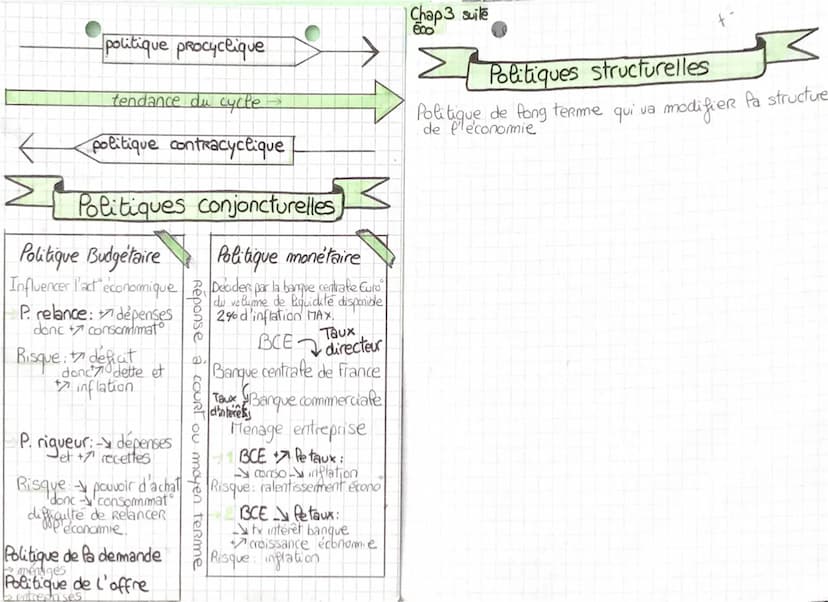 politique procyclique
tendance du cycle →
politique contracyclique
Politiques conjoncturelles
Politique Budgétaire
Influencer l'act° économique
P. relance: +↗ dépenses
donc +↗ consommmat°
Risque: +↗ déficit
donc ↗ dette et
+↗ inflation
P. rigueur: -↘ dépenses
et +↗ recettes
Risque: -↘ pouvoir d'achat
donc -↘ consommmat°
difficulté de relancer
l'économie.
Politique de la demande
→ ménages
Politique de l'offre
→ entreprises
réponse à court ou moyen terme
Politique monétaire
Décider par la banque centrale Euro°
du volume de liquidité disponible
2% d'inflation MAX.
BCE
Taux
directeur
Banque centrale de France
Taux
d'intérêts
Banque commerciale
Ménage entreprise
→ 1 BCE +↗ le taux:
-↘ conso -↘ inflation
Risque: ralentissement écono°
→ 2 BCE -↘ le taux:
-↘ tx intérêt banque
+↗ croissance économie
Risque: inflation
Chap3 suite
éco
+-
Politiques structurelles
Politique de long terme qui va modifier la structure
de l'économie